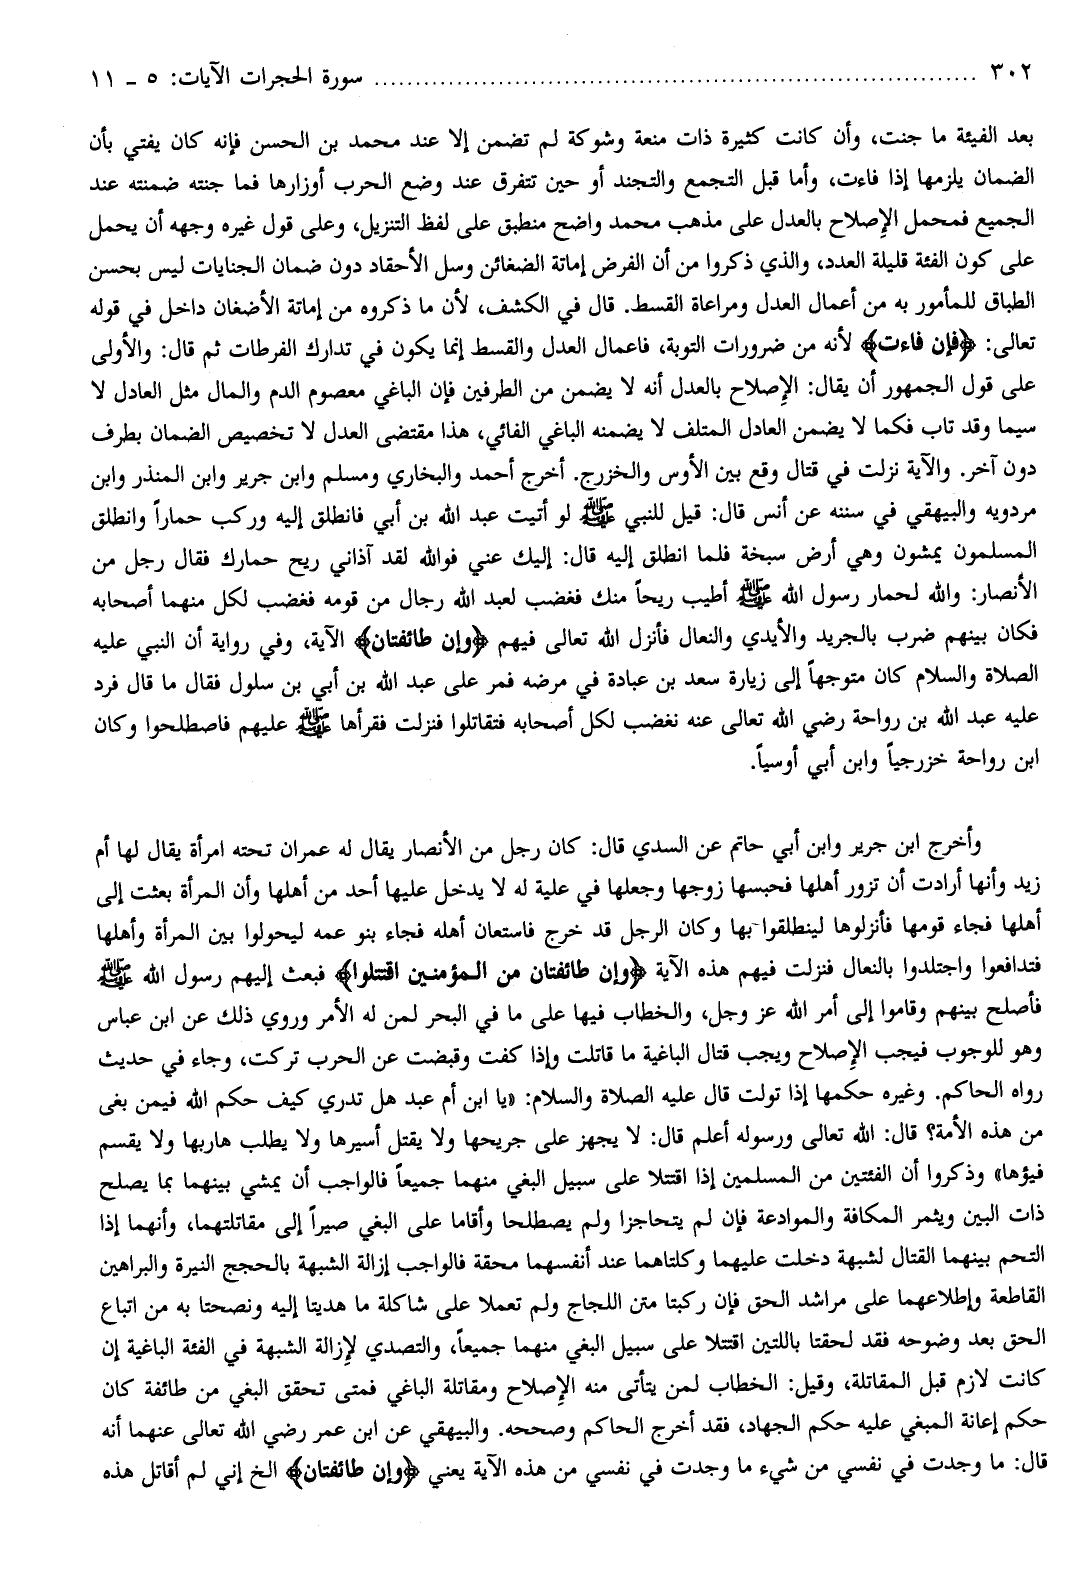 ٣٠٢ ........................ سورة الحجرات الآيات: ٥ ـ ١١
بعد الفيئة ما جنت، وأن كانت كثيرة ذات منعة وشوكة لم تضمن إلا عند محمد بن الحسن فإنه كان يفتي بأن
الضمان يلزمها إذا فاءت، وأما قبل التجمع والتجند أو حين تتفرق عند وضع الحرب أوزارها فما جنته ضمنته عند
الجميع فمحمل الإصلاح بالعدل على مذهب محمد واضح منطبق على لفظ التنزيل، وعلى قول غيره وجهه أن يحمل
على كون الفئة قليلة العدد، والذي ذكروا من أن الفرض إماتة الضغائن وسل الأحقاد دون ضمان الجنايات ليس بحسن
الطباق للمأمور به من أعمال العدل ومراعاة القسط. قال في الكشف، لأن ما ذكروه من إماتة الأضغان داخل في قوله
تعالى: ﴿فإن فاءت﴾ لأنه من ضرورات التوبة، فاعمال العدل والقسط إنما يكون في تدارك الفرطات ثم قال: والأولى
على قول الجمهور أن يقال: الإصلاح بالعدل أنه لا يضمن من الطرفين فإن الباغي معصوم الدم والمال مثل العادل لا
سيما وقد تاب فكما لا يضمن العادل المتلف لا يضمنه الباغي الفائي، هذا مقتضى العدل لا تخصيص الضمان بطرف
دون آخر. والآية نزلت في قتال وقع بين الأوس والخزرج. أخرج أحمد والبخاري ومسلم وابن جرير وابن المنذر وابن
مردويه والبيهقي في سننه عن أنس قال: قيل للنبي ﷺ لو أتيت عبد الله بن أبي فانطلق إليه وركب حماراً وانطلق
المسلمون يمشون وهي أرض سبخة فلما انطلق إليه قال: إليك عني فوالله لقد آذاني ريح حمارك فقال رجل من
الأنصار: والله لحمار رسول الله ﷺ أطيب ريحاً منك فغضب لعبد الله رجال من قومه فغضب لكل منهما أصحابه
فكان بينهم ضرب بالجريد والأيدي والنعال فأنزل الله تعالى فيهم ﴿وإن طائفتان﴾ الآية، وفي رواية أن النبي عليه
الصلاة والسلام كان متوجهاً إلى زيارة سعد بن عبادة في مرضه فمر على عبد الله بن أبي بن سلول فقال ما قال فرد
عليه عبد الله بن رواحة رضي الله تعالى عنه نغضب لكل أصحابه فتقاتلوا فنزلت فقرأها ﷺ عليهم فاصطلحوا وكان
ابن رواحة خزرجياً وابن أبي أوسياً.
وأخرج ابن جرير وابن أبي حاتم عن السدي قال: كان رجل من الأنصار يقال له عمران تحته امرأة يقال لها أم
زيد وأنها أرادت أن تزور أهلها فحبسها زوجها وجعلها في علية له لا يدخل عليها أحد من أهلها وأن المرأة بعثت إلى
أهلها فجاء قومها فأنزلوها لينطلقوا بها وكان الرجل قد خرج فاستعان أهله فجاء بنو عمه ليحولوا بين المرأة وأهلها
فتدافعوا واجتلدوا بالنعال فنزلت فيهم هذه الآية ﴿وإن طائفتان من المؤمنين اقتتلوا﴾ فبعث إليهم رسول الله ﷺ
فأصلح بينهم وقاموا إلى أمر الله عز وجل، والخطاب فيها على ما في البحر لمن له الأمر وروي ذلك عن ابن عباس
وهو للوجوب فيجب الإصلاح ويجب قتال الباغية ما قاتلت وإذا كفت وقبضت عن الحرب تركت، وجاء في حديث
رواه الحاكم. وغيره حكمها إذا تولت قال عليه الصلاة والسلام: «يا ابن أم عبد هل تدري كيف حكم الله فيمن بغى
من هذه الأمة؟ قال: الله تعالى ورسوله أعلم قال: لا يجهز على جريحها ولا يقتل أسيرها ولا يطلب هاربها ولا يقسم
فيؤها» وذكروا أن الفئتين من المسلمين إذا اقتتلا على سبيل البغي منهما جميعاً فالواجب أن يمشي بينهما بما يصلح
ذات البين ويثمر المكافة والموادعة فإن لم يتحاجزا ولم يصطلحا وأقاما على البغي صيراً إلى مقاتلتهما، وأنهما إذا
التحم بينهما القتال لشبهة دخلت عليهما وكلتاهما عند أنفسهما محقة فالواجب إزالة الشبهة بالحجج النيرة والبراهين
القاطعة وإطلاعهما على مراشد الحق فإن ركبتا متن اللجاج ولم تعملا على شاكلة ما هديتا إليه ونصحتا به من اتباع
الحق بعد وضوحه فقد لحقتا باللتين اقتتلا على سبيل البغي منهما جميعاً، والتصدي لإزالة الشبهة في الفئة الباغية إن
كانت لازم قبل المقاتلة، وقيل: الخطاب لمن يتأتى منه الإصلاح ومقاتلة الباغي فمتى تحقق البغي من طائفة كان
حكم إعانة المبغي عليه حكم الجهاد، فقد أخرج الحاكم وصححه. والبيهقي عن ابن عمر رضي الله تعالى عنهما أنه
قال: ما وجدت في نفسي من شيء ما وجدت في نفسي من هذه الآية يعني ﴿وإن طائفتان﴾ الخ إني لم أقاتل هذه